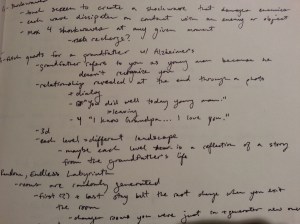 - and scream to create a shockwave that damages enemies
- each wave dissipates on contact with an enemy or object
- max 4 shockwaves at any given moment
- recharge?
quests for a grandfather w/ Alzheimer's
- grandfather refers to you as young man because he
doesn't recognize you
- relationship revealed at the end through a photo
- dialog
- "You did well today young man."
- leaving
- "I know Grandpa.... I love you."
- 3d
- each level = different landscape
- maybe each level is a reflection of a story
from the grandfather's life
Endless Labyrinth
- rooms are randomly generated
- first & last stay but the rest change when you exit
the room
- change room you were just in + generate new